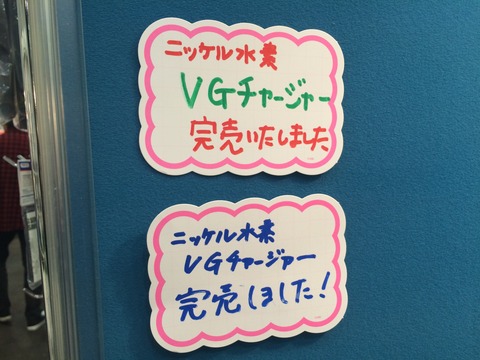 ニッケル水素
VGチャージャー
完売いたしました
ニッケル水素
VGチャージャー
完売しました!